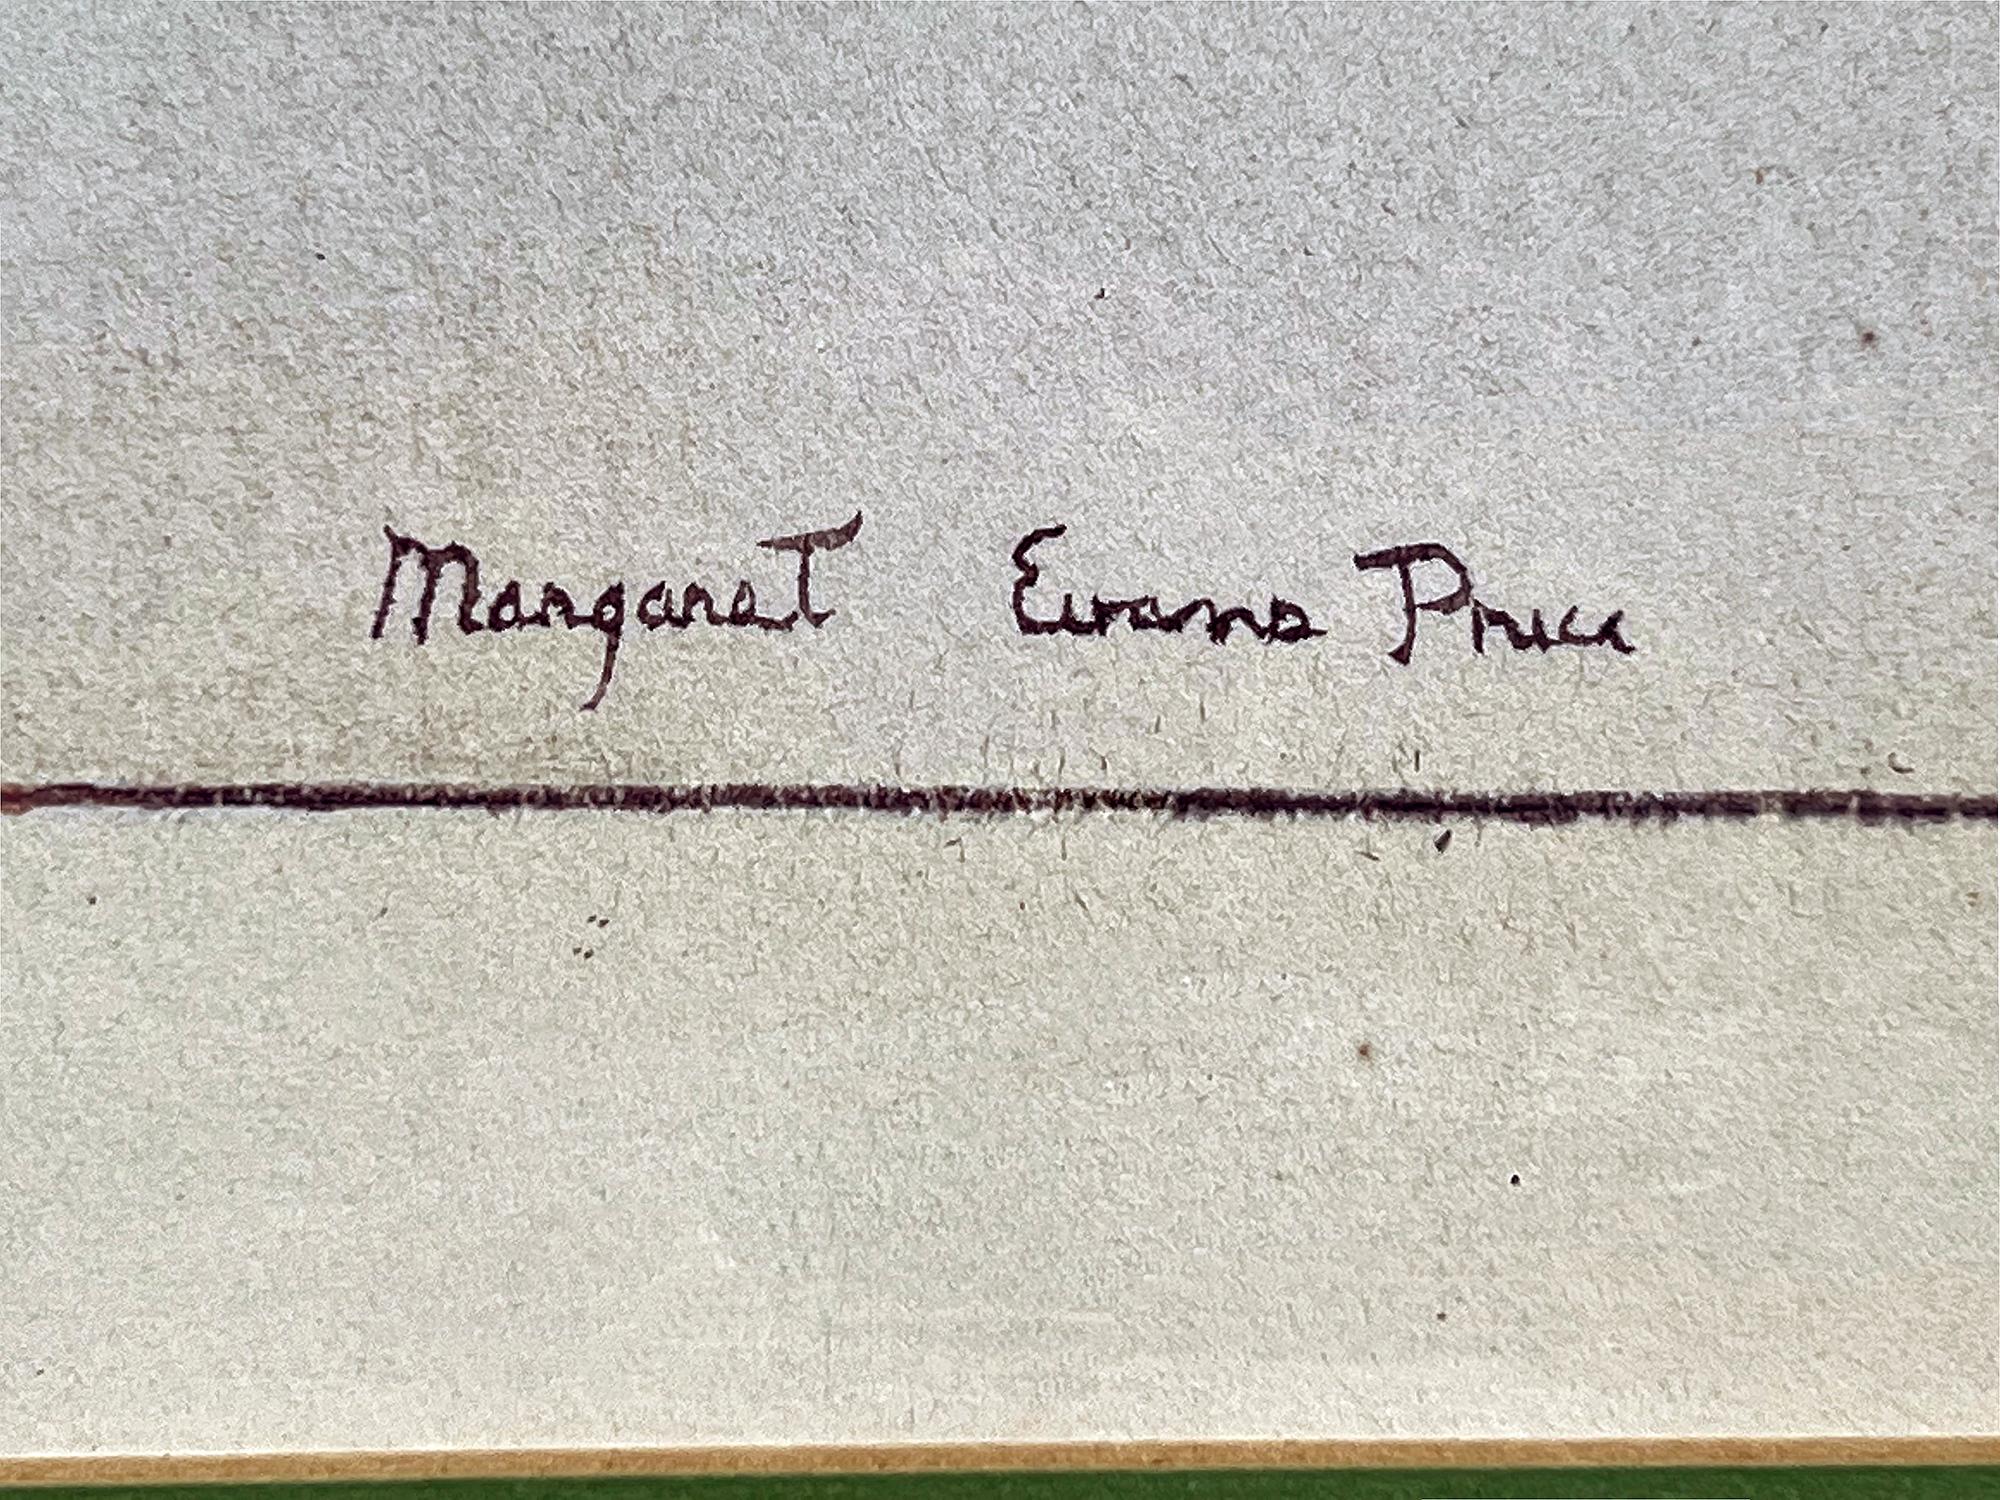 Margaret Evans Price